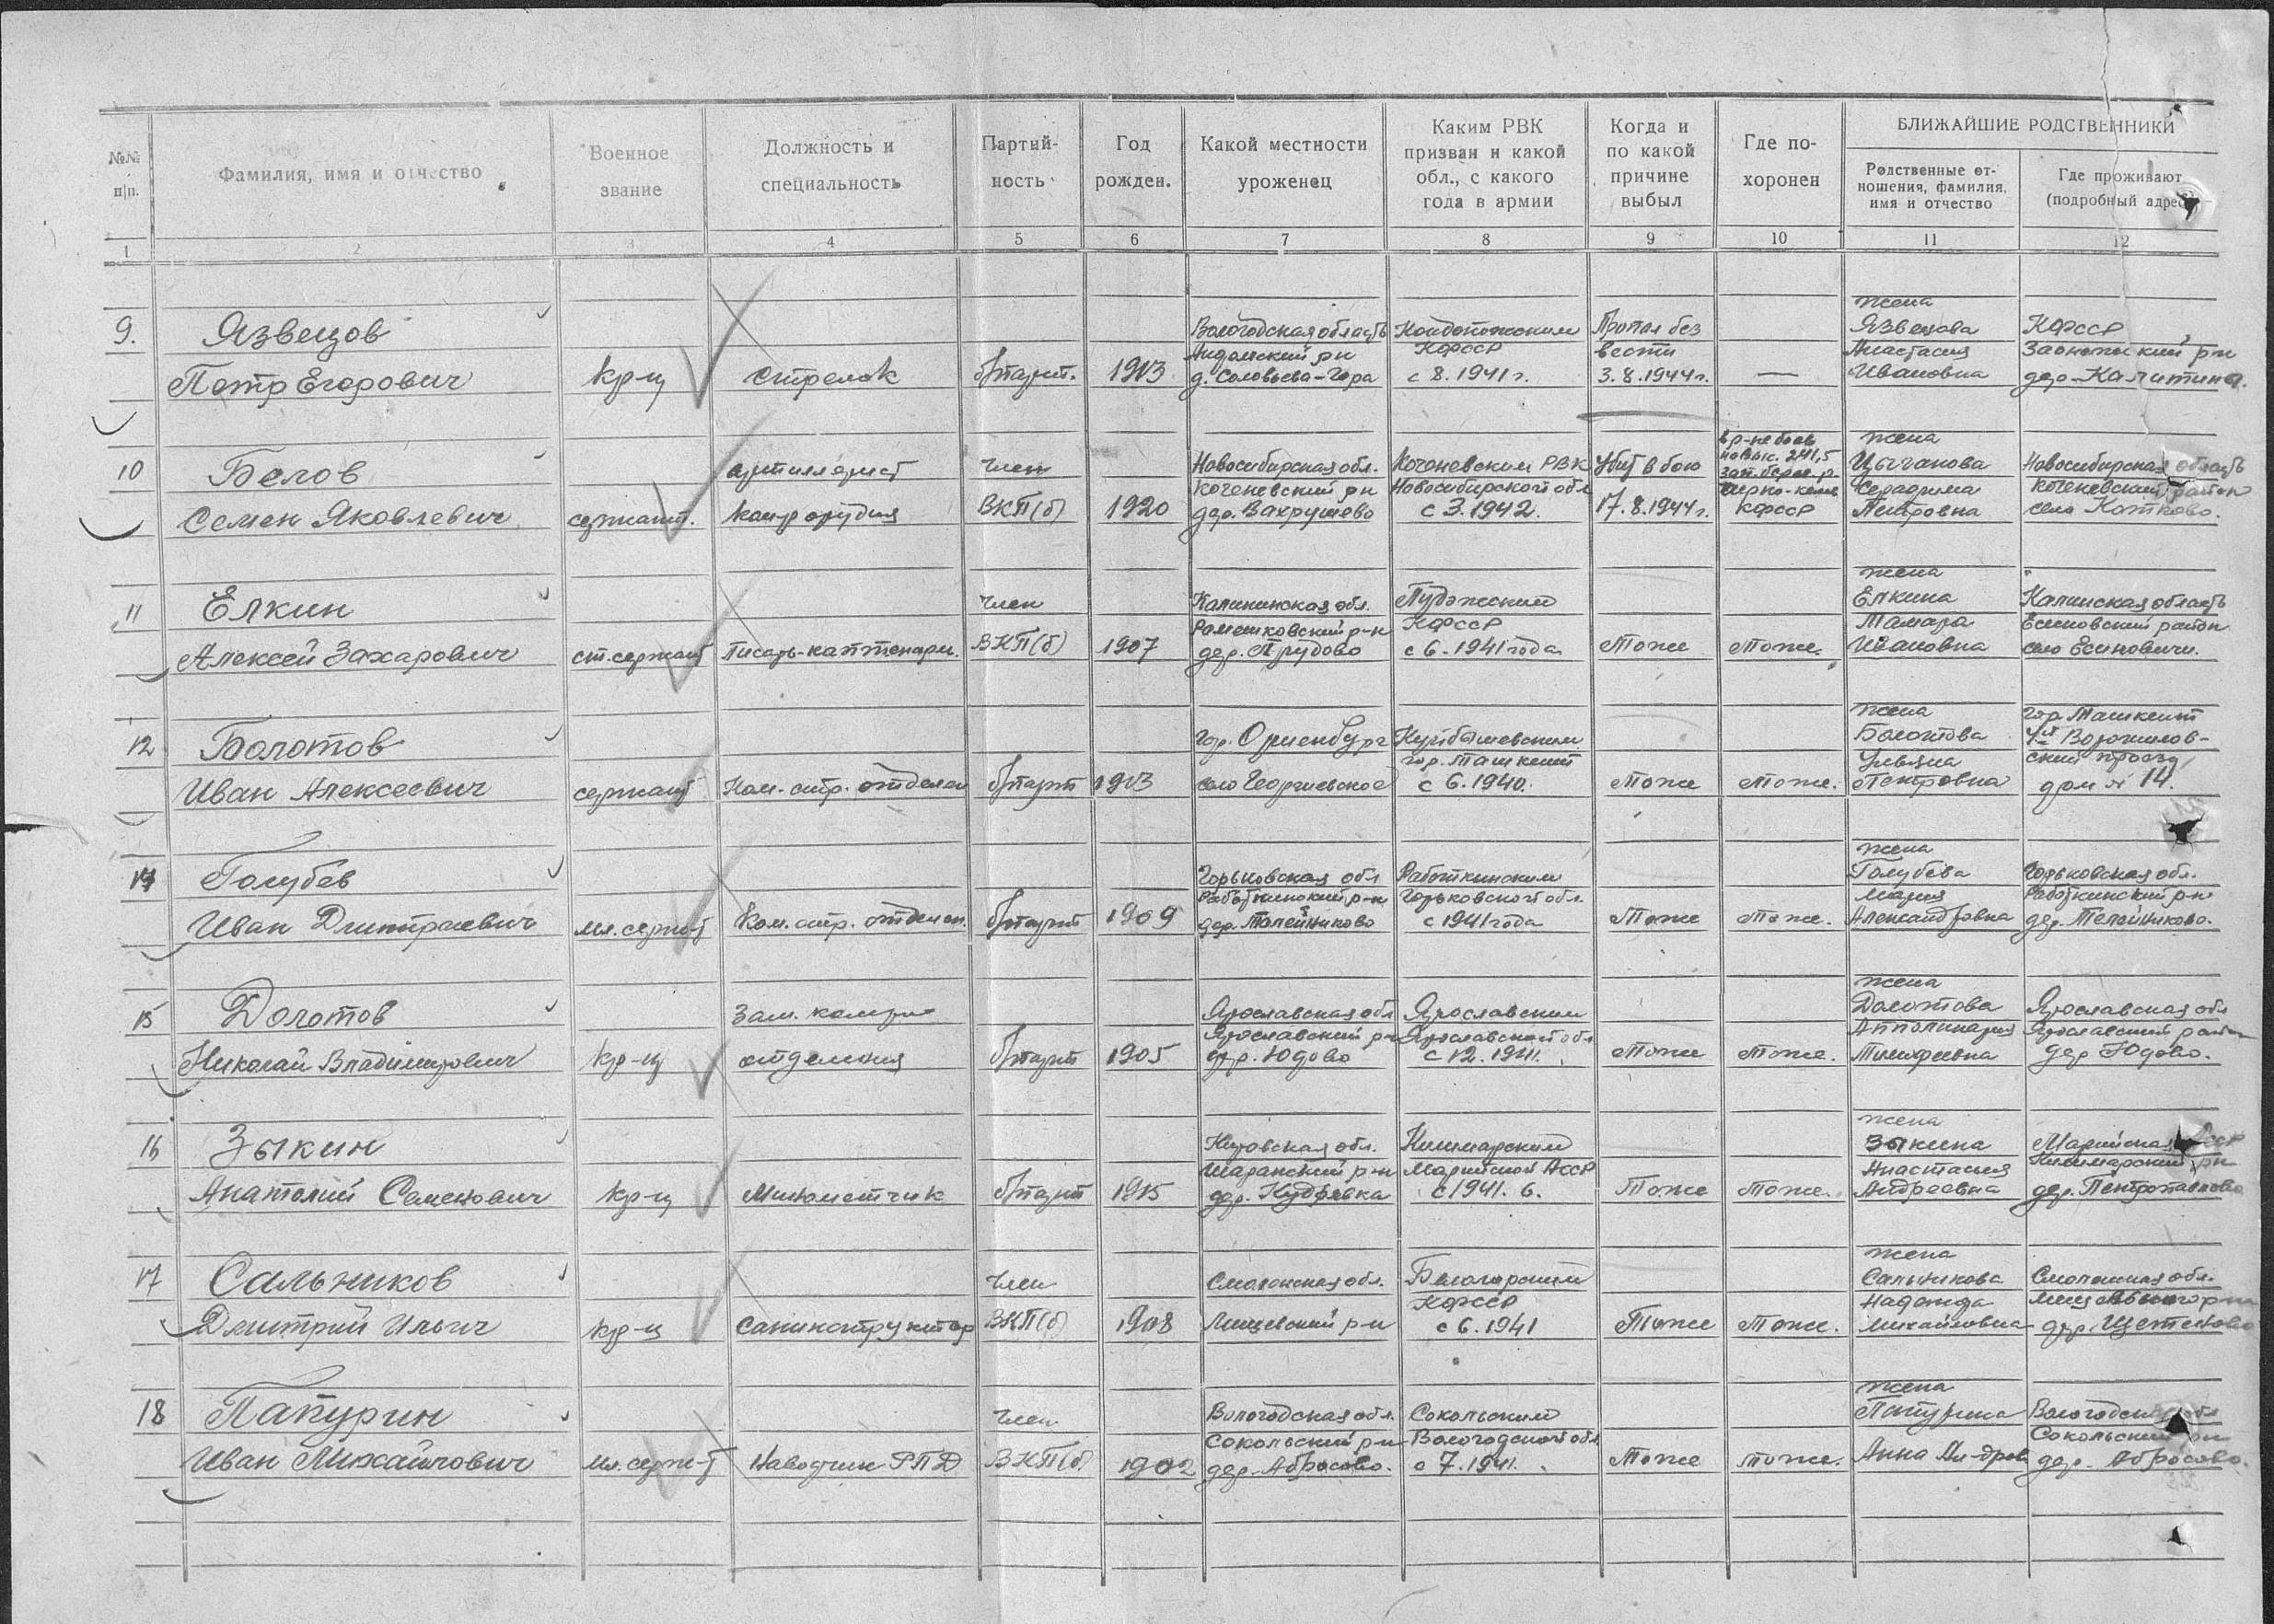 №№ п|п.
Фамилия, имя и отчество
Военное звание
Должность и специальность
Партий-
ность
Год
рожден.
Какой местности
уроженец
Каким РВК
призван и какой
обл., с какого
года в армии
Когда и
по какой
причине
выбыл
Где по-
хоронен
БЛИЖАЙШИЕ РОДСТВЕННИКИ
Родственные от-
ношения, фамилия,
имя и отчество
Где проживают
(подробный адрес)
1 2 3 4 5 6 7 8 9 10 11 12
9.
Язвецов
Петр Егорович
кр-ц
стрелок
б/парт.
1913
Вологодская область
Андомский рн
д. Соловьева-Гора
Кондопожским
КФССР
с 8.1941г.
Пропал без
вести
3.8.1944г.
—
жена
Язвецова
Анастасия
Ивановна
КФССР
Заонежский рн
дер. Калитина.
10
Белов
Семен Яковлевич
сержант.
артиллерист
ком-р орудия
член
ВКП(б)
1920
Новосибирская обл.
Коченевский рн
дер. Вахрушево
Коченевским РВК
Новосибирской обл
с 3.1942.
Убит в бою
17.8.1944г.
в р-не боев
на выс. 241,5
зап. берег. р.
КФССР
жена
Цыганова
Серафима
Петровна
Новосибирская область
Коченевский район
село Катково.
11
Елкин
Алексей Захарович
ст. сержант
Писарь-каптенарм.
член
ВКП(б)
1907
Калининская обл.
Рамешковский р-н
дер. Прудово
Пудожским
КФССР
с 6.1941 года
Тоже
Тоже.
жена
Елкина
Тамара
Ивановна
Калинская область
Есеновский район
село Есиновичи.
12
Болотов
Иван Алексеевич
сержант
Ком. стр. отделен
б/парт
1913
гор. Оренбург
село Георгиевское
Куйбышевским
гор. Ташкент
с 6.1940.
Тоже
Тоже.
жена
Болотова
Ульяна
Петровна
гор. Ташкент
4й Ворошилов-
ский проезд
дом № 14.
14
Голубев
Иван Дмитриевич
мл. серж-т
Ком. стр. отделен.
б/парт
1909
Горьковская обл
Работкинский р-н
дер. Телейниково
Работкинским
Горьковской обл.
с 1941 года
Тоже
Тоже.
жена
Голубева
Мария
Александровна
Горьковская обл.
Работкинский р-н
дер. Телейниково.
15
Долотов
Николай Владимирович
кр-ц
Зам. ком-ра
отделения
б/парт
1905
Ярославская обл
Ярославский р-н
дер. Юдово
Ярославским
Ярославской обл
с 12.1941.
Тоже
Тоже.
жена
Долотова
Апполинария
Тимофеевна
Ярославская обл
Ярославский район
дер Юдово.
16
Зыкин
Анатолий Семенович
кр-ц
Минометчик
б/парт
1915
Кировская обл.
Шаранский р-н
дер. Кудрявка
Килимарским
Марийской АССР
с 1941. 6.
Тоже
Тоже.
жена
Зыкина
Анастасия
Андреевна
Марийская АССР
Килимарский рн
дер. Петропавлово
17
Сальников
Дмитрий Ильич
кр-ц
Санинструктор
член
ВКП(б)
1908
Смоленская обл.
Мещевский р-н
Беломорским
КФССР
с 6.1941
Тоже
Тоже.
жена
Сальникова
Надежда
Михайловна
Смоленская обл.
дер. Щетиново
18
Папурин
Иван Михайлович
мл. серж-т
Наводчик РПД
член
ВКП(б)
1902
Вологодская обл.
Сокольский р-н
дер. Абросово.
Сокольским
Вологодской обл.
с 7.1941.
Тоже
Тоже.
жена
Папурина
Анна Ал-дров
Вологодская обл
Сокольский рн
дер. Абросово.